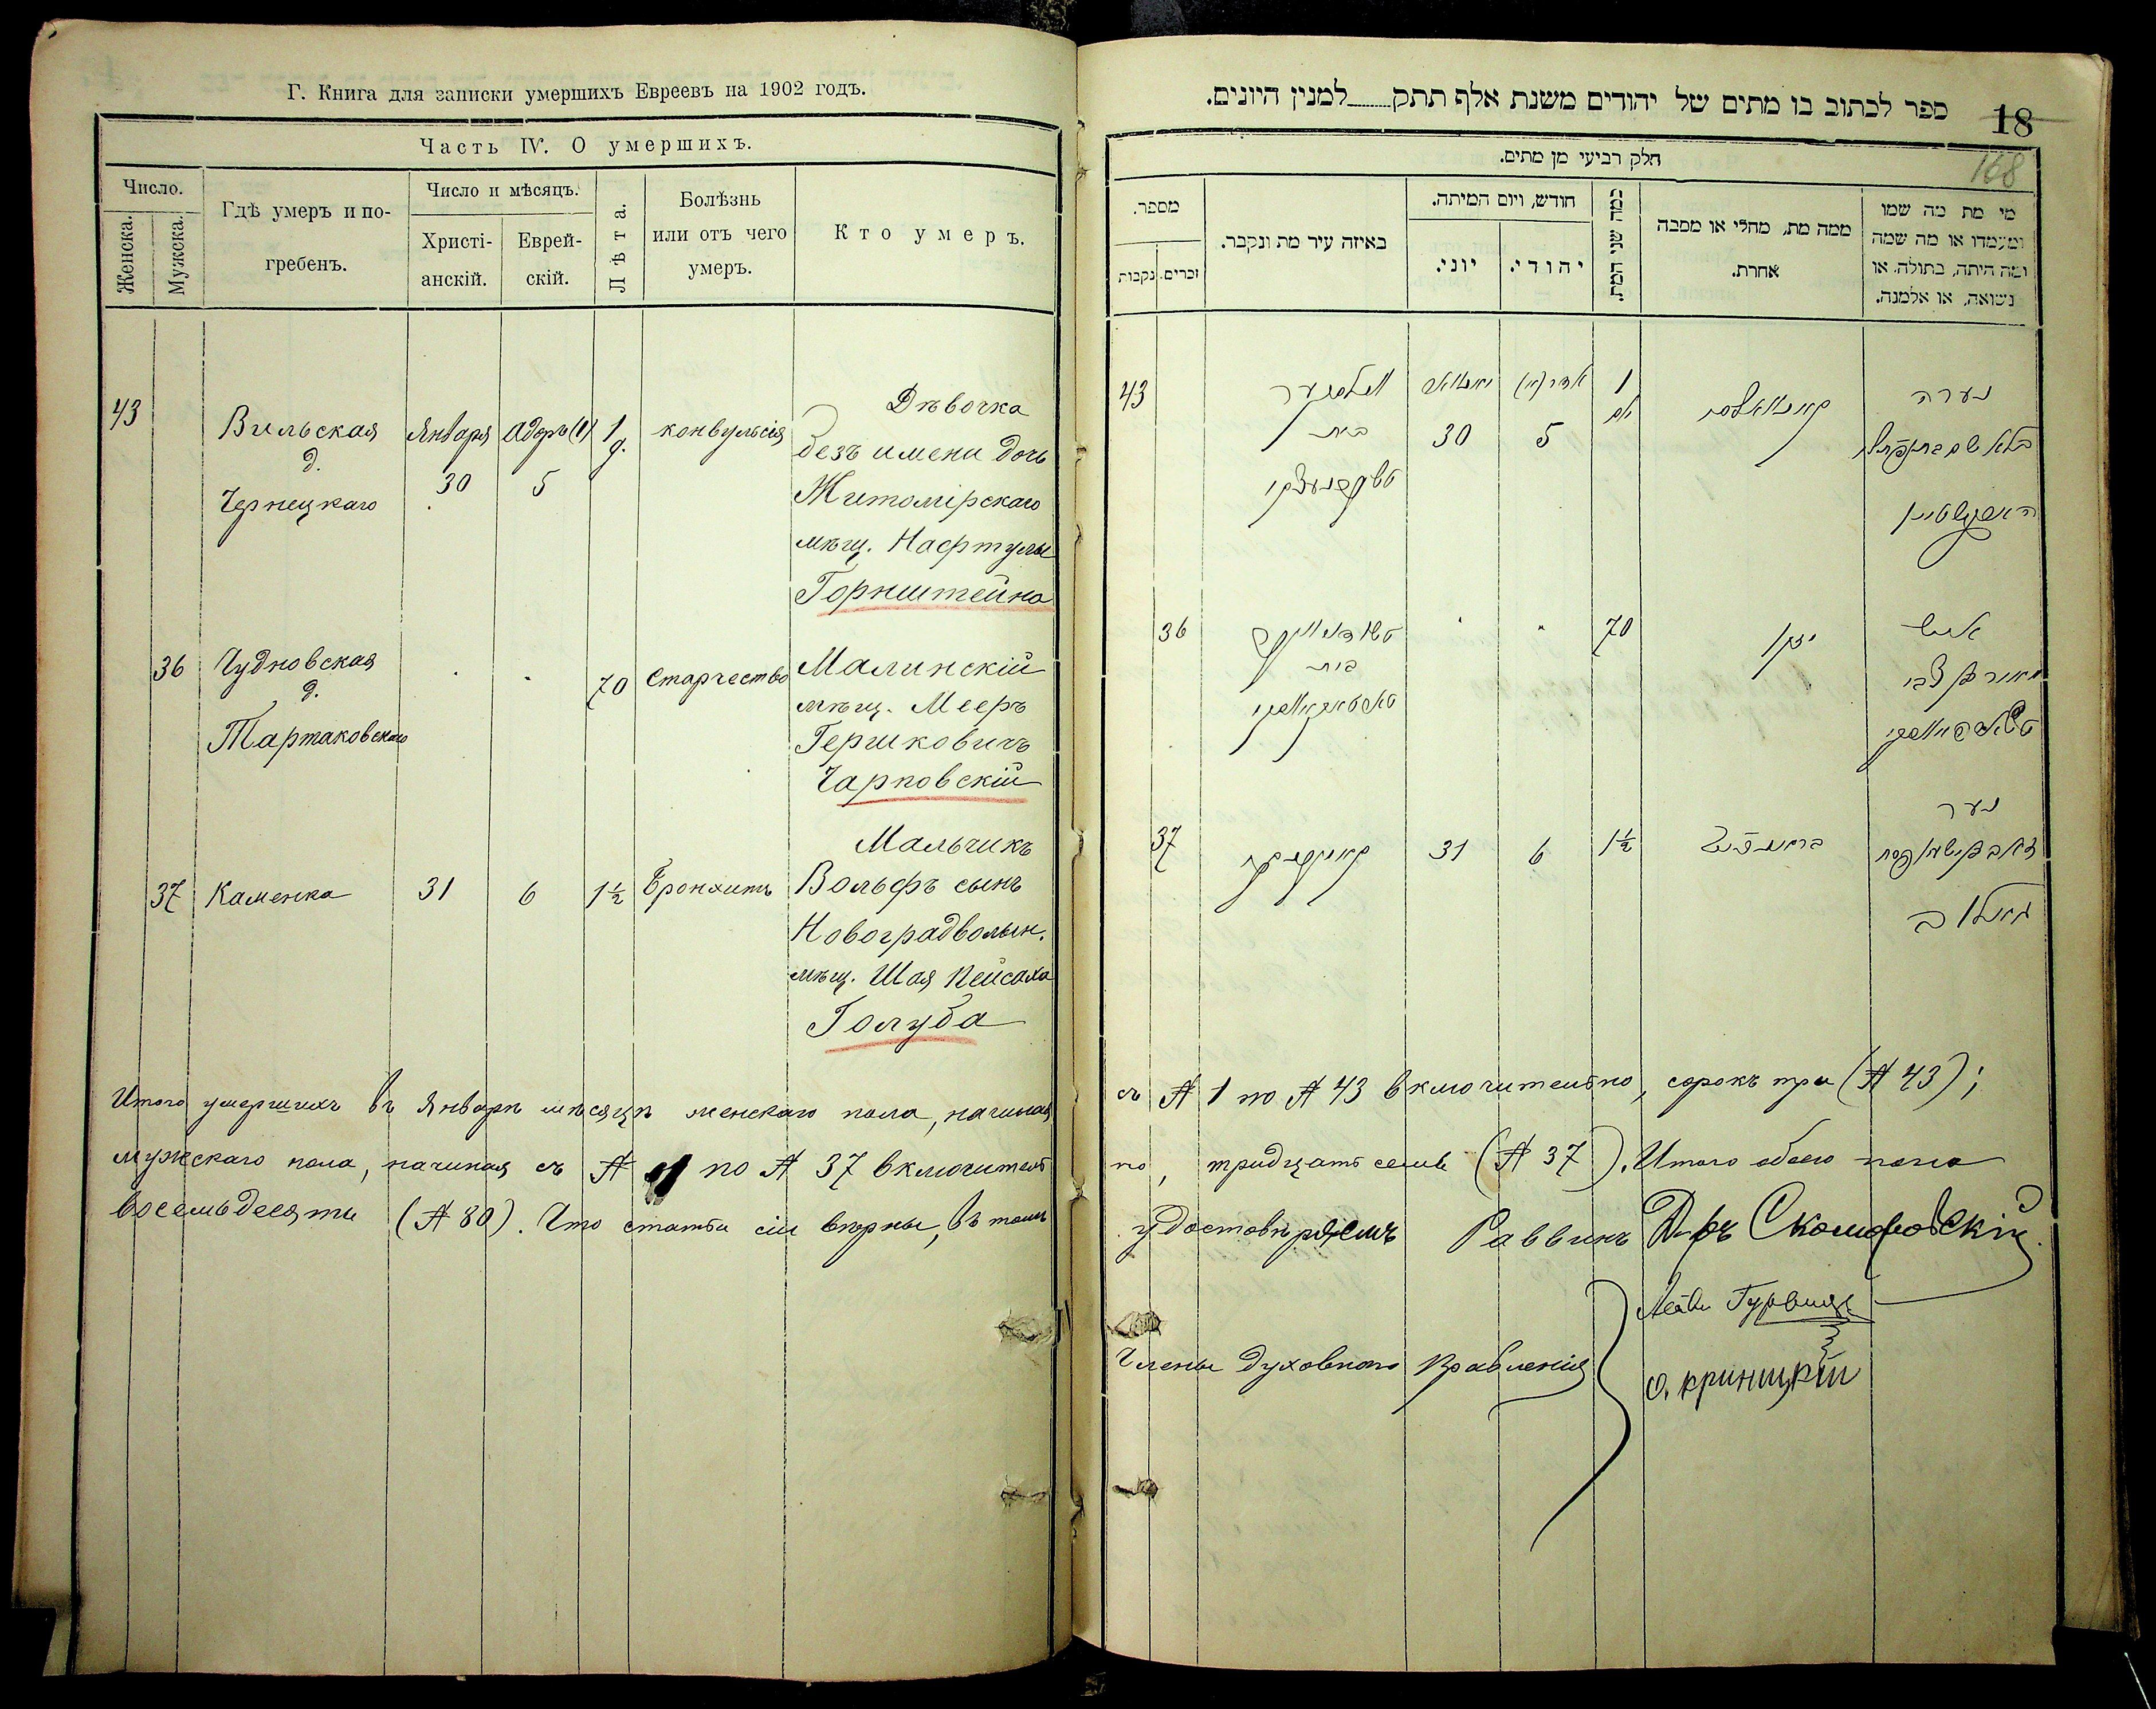 Г. Книга для записки умершихъ Евреевъ на 1902 годъ.
Часть IV. О умершихъ.
Число.
Женска.
Мужска.
Гдѣ умеръ и по-
гребенъ.
Число и мѣсяцъ.
Христі-
анскій.
Еврей-
скій.
Лѣта.
Болѣзнь
или отъ чего
умеръ.
Кто умеръ.
43
Вильская
д.
Чернецкаго
Января
30
Адаръ (1)
5
1
д.
конвульсія
Дѣвочка
безъ имени дочь
Житомірскаго
мѣщ. Нафтулы
Горнштейна
36
Чудновская
д.
Тартаковскаго
70
старчество
Малинскій
мѣщ. Мееръ
Гершковичъ
Чарновскій
37
Каменка
31
6
1½
Бронхитъ
Мальчикъ
Вольфъ сынъ
Новоградволын.
мѣщ. Шая Пейсаха
Голуба
Итого умершихъ въ Январѣ мѣсяцѣ женскаго пола, начиная
мужскаго пола, начиная съ № 1 по № 37 включитель
восемьдесяты (№ 80). Что статьи сіи вѣрны, въ томъ
18
168
ספר לכתוב בו מתים של יהודים משנת אלף תתק למנין היונים.
חלק רביעי מן מתים.
מספר.
זכרים.
נקבות
באיזה עיר מת ונקבר.
חודש, ויום המיתה.
יוני.
יהודי.
כמה שני המת.
ממה מת, מחלי או מסבה
אחרת.
מי מת מה שמו
ומעמדו או מה שמה
ומה היתה, בתולה, או
נשואה, או אלמנה.
43
בית
30
5
1
נערה
36
בית
70
זקן
איש
מאיר בן צבי
37
31
6
1½
נער
съ № 1 по № 43 включительно, сорокъ три (№ 43);
но, тридцать семь (№ 37). Итого обоего пола
удостовѣряемъ Раввинъ Д-ръ Скоморовскій
Члены Духовнаго Правленія
Лейви Гурвицъ
О. Криницкій